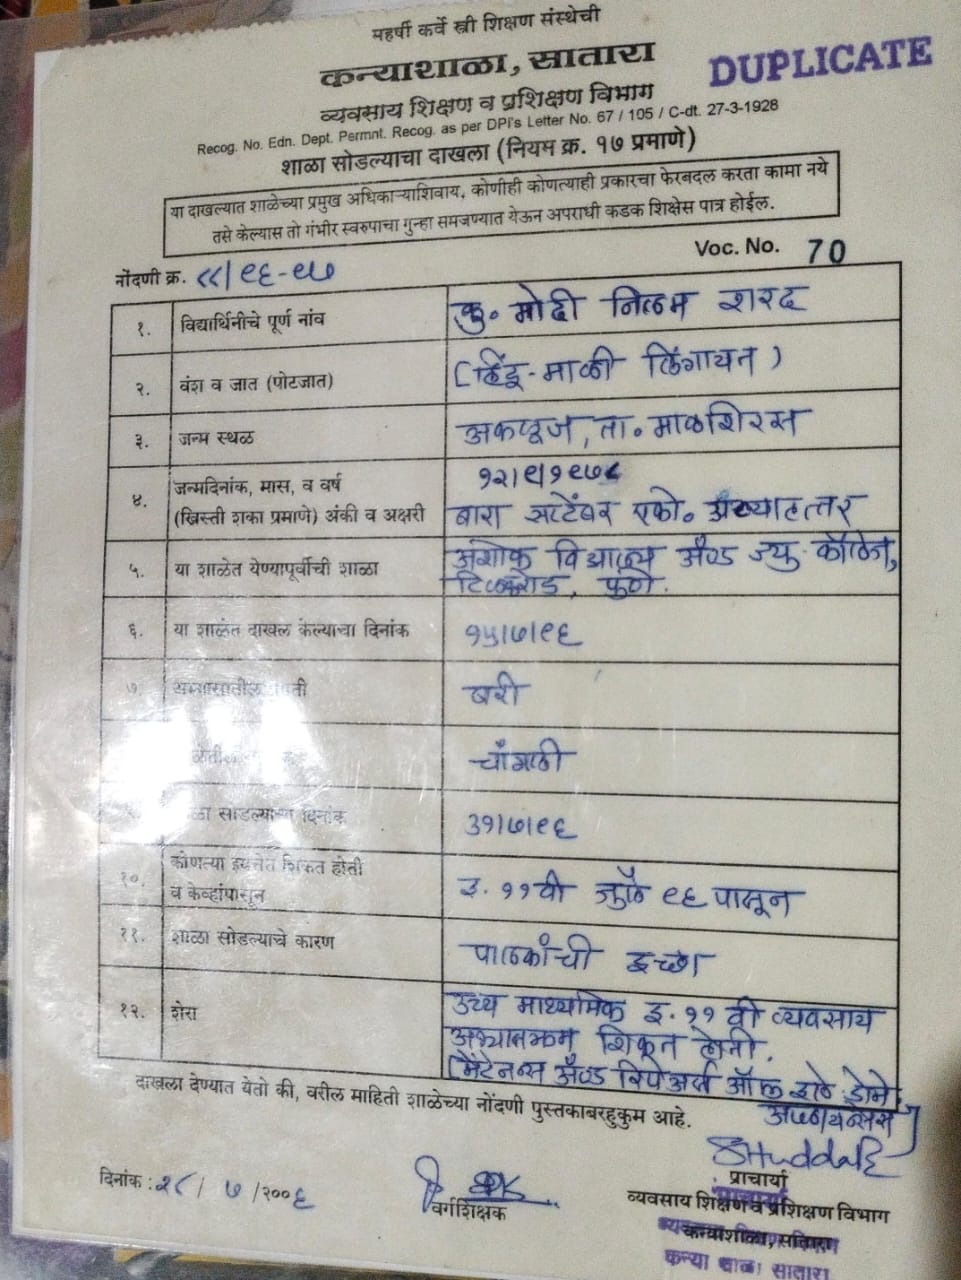 महर्षी कर्वे स्त्री शिक्षण संस्थेची
कन्याशाळा, सातारा
DUPLICATE
व्यवसाय शिक्षण व प्रशिक्षण विभाग
Recog. No. Edn. Dept. Permnt. Recog. as per DPI's Letter No. 67 / 105 / C-dt. 27-3-1928
शाळा सोडल्याचा दाखला (नियम क्र. १७ प्रमाणे)
या दाखल्यात शाळेच्या प्रमुख अधिकाऱ्याशिवाय, कोणीही कोणत्याही प्रकारचा फेरबदल करता कामा नये
तसे केल्यास तो गंभीर स्वरुपाचा गुन्हा समजण्यात येऊन अपराधी कडक शिक्षेस पात्र होईल.
Voc. No. 70
नोंदणी क्र. ८८/९६-९७
१. विद्यार्थिनीचे पूर्ण नांव कु. मोदी निलम शरद
२. वंश व जात (पोटजात) (हिंदू-माळी लिंगायत)
३. जन्म स्थळ अकलूज, ता. माळशिरस
४. जन्मदिनांक, मास, व वर्ष १२/९/१९७८
(ख्रिस्ती शका प्रमाणे) अंकी व अक्षरी बारा सप्टेंबर एको. अठ्याहत्तर
५. या शाळेत येण्यापूर्वीची शाळा अशोक विद्यालय अँण्ड ज्यु. कॉलेज,
टिळकरोड, पुणे.
६. या शाळेत दाखल केल्याचा दिनांक १५/७/९६
७. बरी
चांगली
शाळा सोडल्याचा दिनांक ३१/७/९६
१०. कोणत्या इयत्तेत शिकत होती
व केव्हांपासून इ. ११वी जुलै ९६ पासून
११. शाळा सोडल्याचे कारण पालकांची इच्छा
१२. शेरा उच्च माध्यमिक इ. ११ वी व्यवसाय
अभ्यासक्रम शिकत होती.
(मेंटेनन्स अँण्ड रिपेअर्स ऑफ इले. डोमे.
अप्लायन्सेस)
दाखला देण्यात येतो की, वरील माहिती शाळेच्या नोंदणी पुस्तकाबरहुकुम आहे.
दिनांक : २८/ ७ /२००६
वर्गशिक्षक
प्राचार्या
व्यवसाय शिक्षण व प्रशिक्षण विभाग
कन्याशाळा, सातारा
कन्या शाळा सातारा